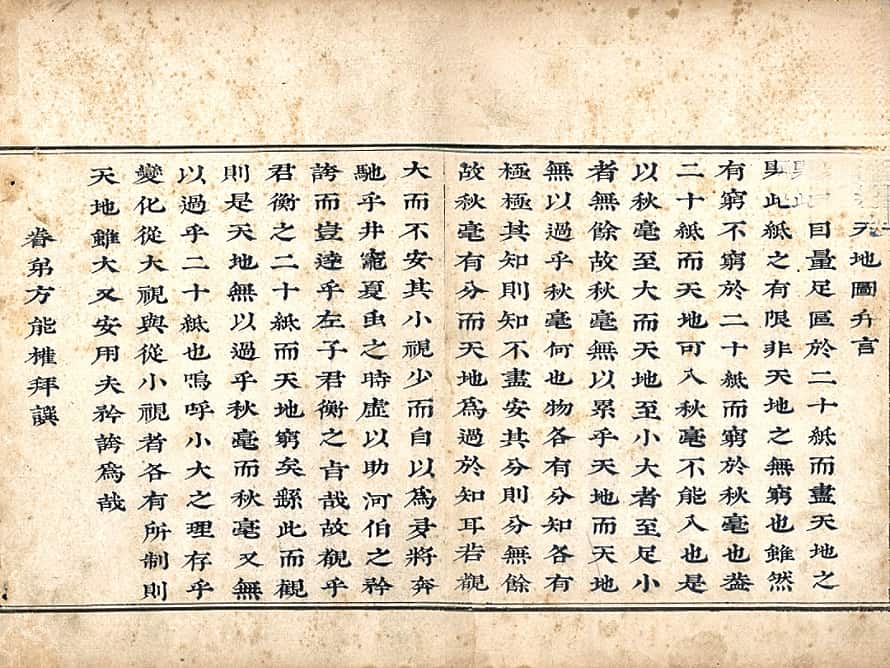 天地圖弁言
目量足區於二十紙而盡天地之
此紙之有限非天地之無窮也雖然
有窮不窮於二十紙而窮於秋毫也蓋
二十紙而天地可入秋毫不能入也是
以秋毫至大而天地至小大者至足小
者無餘故秋毫無以累乎天地而天地
無以過乎秋毫何也物各有分知各有
極極其知則知不盡安其分則分無餘
故秋毫有分而天地爲過於知耳若觀
大而不安其小視少而自以爲多將奔
馳乎井竈夏虫之時虛以助河伯之矜
誇而豈逹乎左子君衡之旨哉故觀乎
君衡之二十紙而天地窮矣繇此而觀
則是天地無以過乎秋毫而秋毫又無
以過乎二十紙也嗚呼小大之理存乎
變化從大視與從小視者各有所制則
天地雖大又安用夫矜誇爲哉
眷弟方能權拜譔